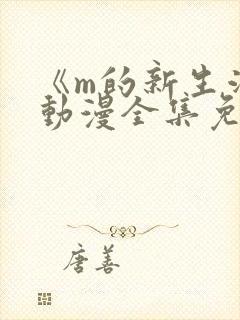 《m的新生活
动漫全集免
唐善